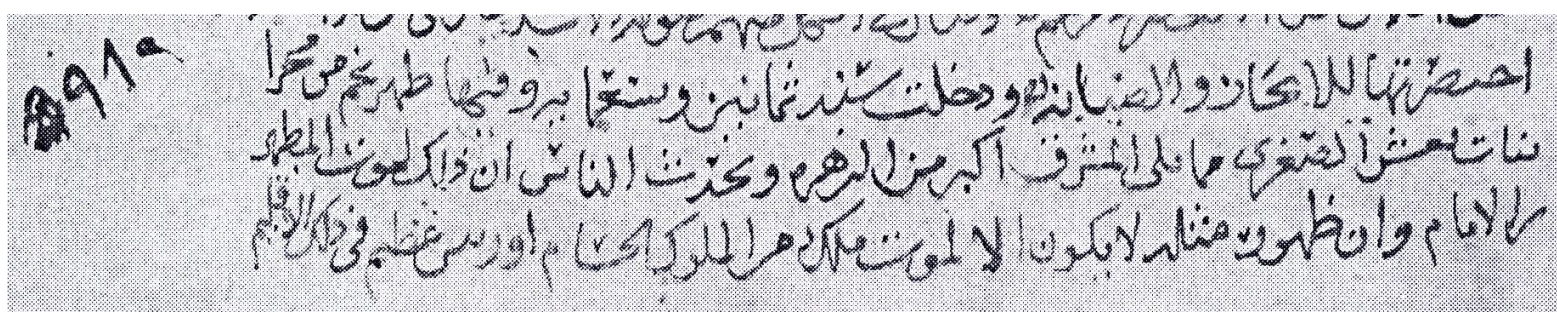 اختصرتها للايجاز والصيانه ودخلت سنه ثمانين وتسعمايه وفيها ظهر نجم من مجرا
بنات نعش الصغرى مما يلى المشرق اكبر من الزهره وتحدث الناس ان ذلك لموت المطهر
الامام وان ظهور مثله لا يكون الا لموت ملك من الملوك العظام او رئيس عظيم فى ذلك الاقليم
٩٨٠